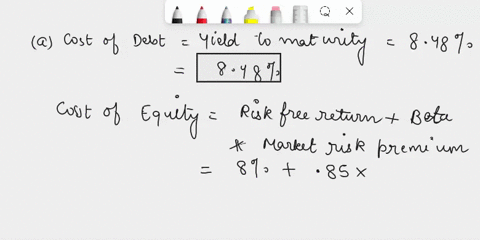 (a) Cost of Debt = Yield to maturity = 8.48%
= 8.48%
Cost of Equity = Risk free return + Beta
* Market risk premium
= 8% + .85 x